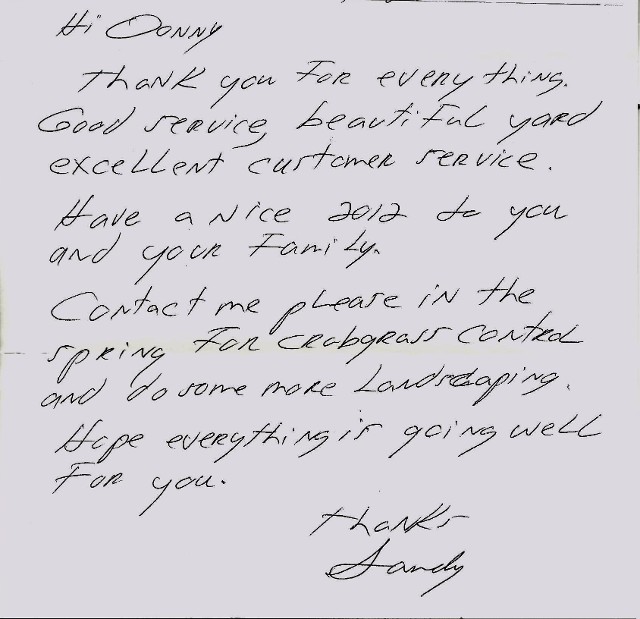 Hi Donny
Thank you For everything.
Good service, beautiful yard
excellent customer service.
Have a nice 2012 to you
and your Family.
Contact me please in the
spring For crabgrass control
and do some more Landscaping.
Hope everything is going well
For you.
Thanks
Sandy